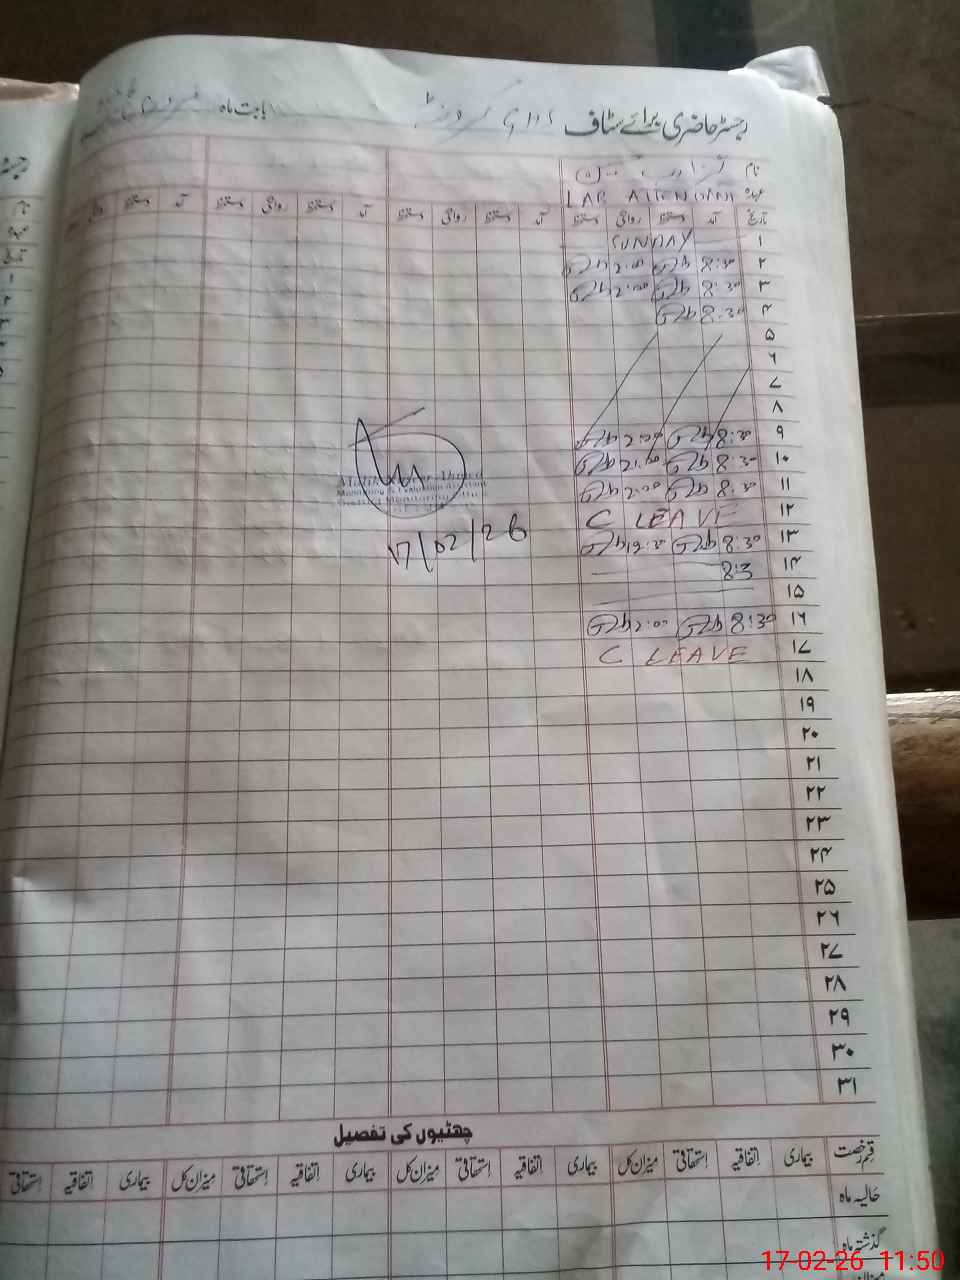 رجسٹر حاضری برائے سٹاف GHS بابت ماہ
نام
عہدہ LAB ATTENDANT
تاریخ آمد دستخط روانگی دستخط آمد دستخط روانگی دستخط آمد دستخط روانگی دستخط
۱ SUNDAY
۲ 8:30 2:00
۳ 8:30 2:00
۴ 8:30
۵
۶
۷
۸
۹ 8:30 2:00
۱۰ 8:30 2:00
۱۱ 8:30 2:00
۱۲ C LEAVE
۱۳ 8:30
۱۴ 8:3
۱۵
۱۶ 8:30 2:00
۱۷ C LEAVE
17/02/26
۱۸
۱۹
۲۰
۲۱
۲۲
۲۳
۲۴
۲۵
۲۶
۲۷
۲۸
۲۹
۳۰
۳۱
چھٹیوں کی تفصیل
قسم رخصت بیماری اتفاقیہ استحقاقی میزان کل بیماری اتفاقیہ استحقاقی میزان کل بیماری اتفاقیہ استحقاقی میزان کل بیماری اتفاقیہ استحقاقی
حالیہ ماہ
گذشتہ ماہ
17-02-26 11:50